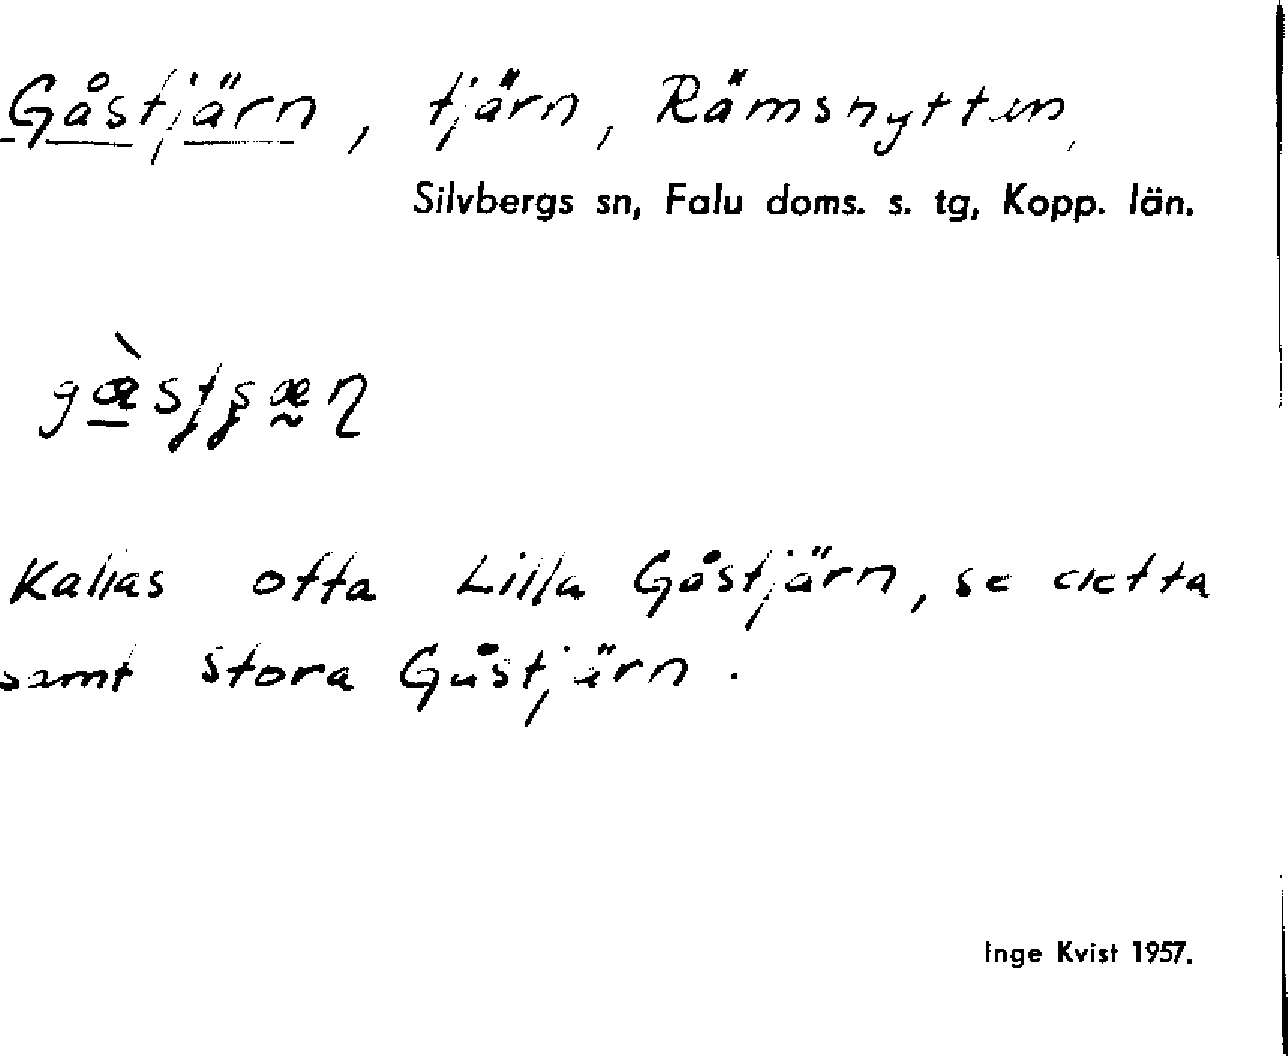 Gåstjärn, tjärn, Rämsnyttan,
Silvbergs sn, Falu doms. s. tg, Kopp. län.
Kallas ofta Lilla Gåstjärn, se detta
samt Stora Gåstjärn.
Inge Kvist 1957.